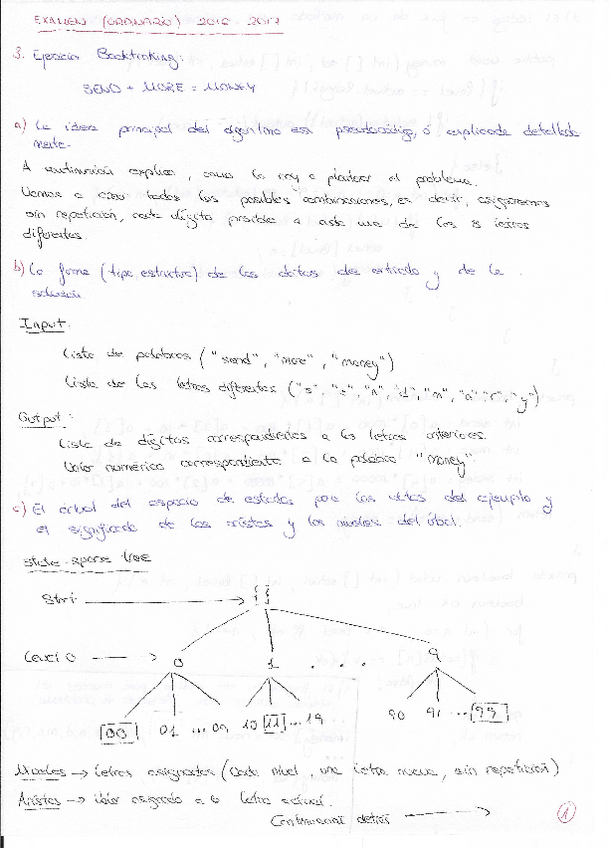 EXAMEN (ORDINARIO) 2016-2017
3. Ejercicio Backtracking:
SEND + MORE = MONEY
a) La idea principal del algoritmo en pseudocódigo, o explicado detallada
mente.
A continuación explica, como la voy a plantear el problema.
Vamos a crear todas las posibles combinaciones, es decir, asignaremos
sin repetición, cada dígito posible a cada una de las 8 letras
diferentes.
b) La forma (tipo estructura) de los datos de entrada y de la
solución
Input:
Lista de palabras ("send", "more", "money")
Lista de las letras diferentes ("s", "e", "n", "d", "m", "o", "r", "y")
Output:
Lista de dígitos correspondientes a las letras anteriores.
Valor numérico correspondiente a la palabra "money".
c) El árbol del espacio de estados para los datos del ejemplo y
el significado de las aristas y los niveles del árbol.
state-space tree
Start
Level 0
0 1 9
00 01 ... 09 10 11 ... 19 90 91 ... 99
Niveles → Letras asignadas (Cada nivel, una letra nueva, sin repetición)
Aristas → Valor asignado a la letra actual.
Continuación detrás →
1